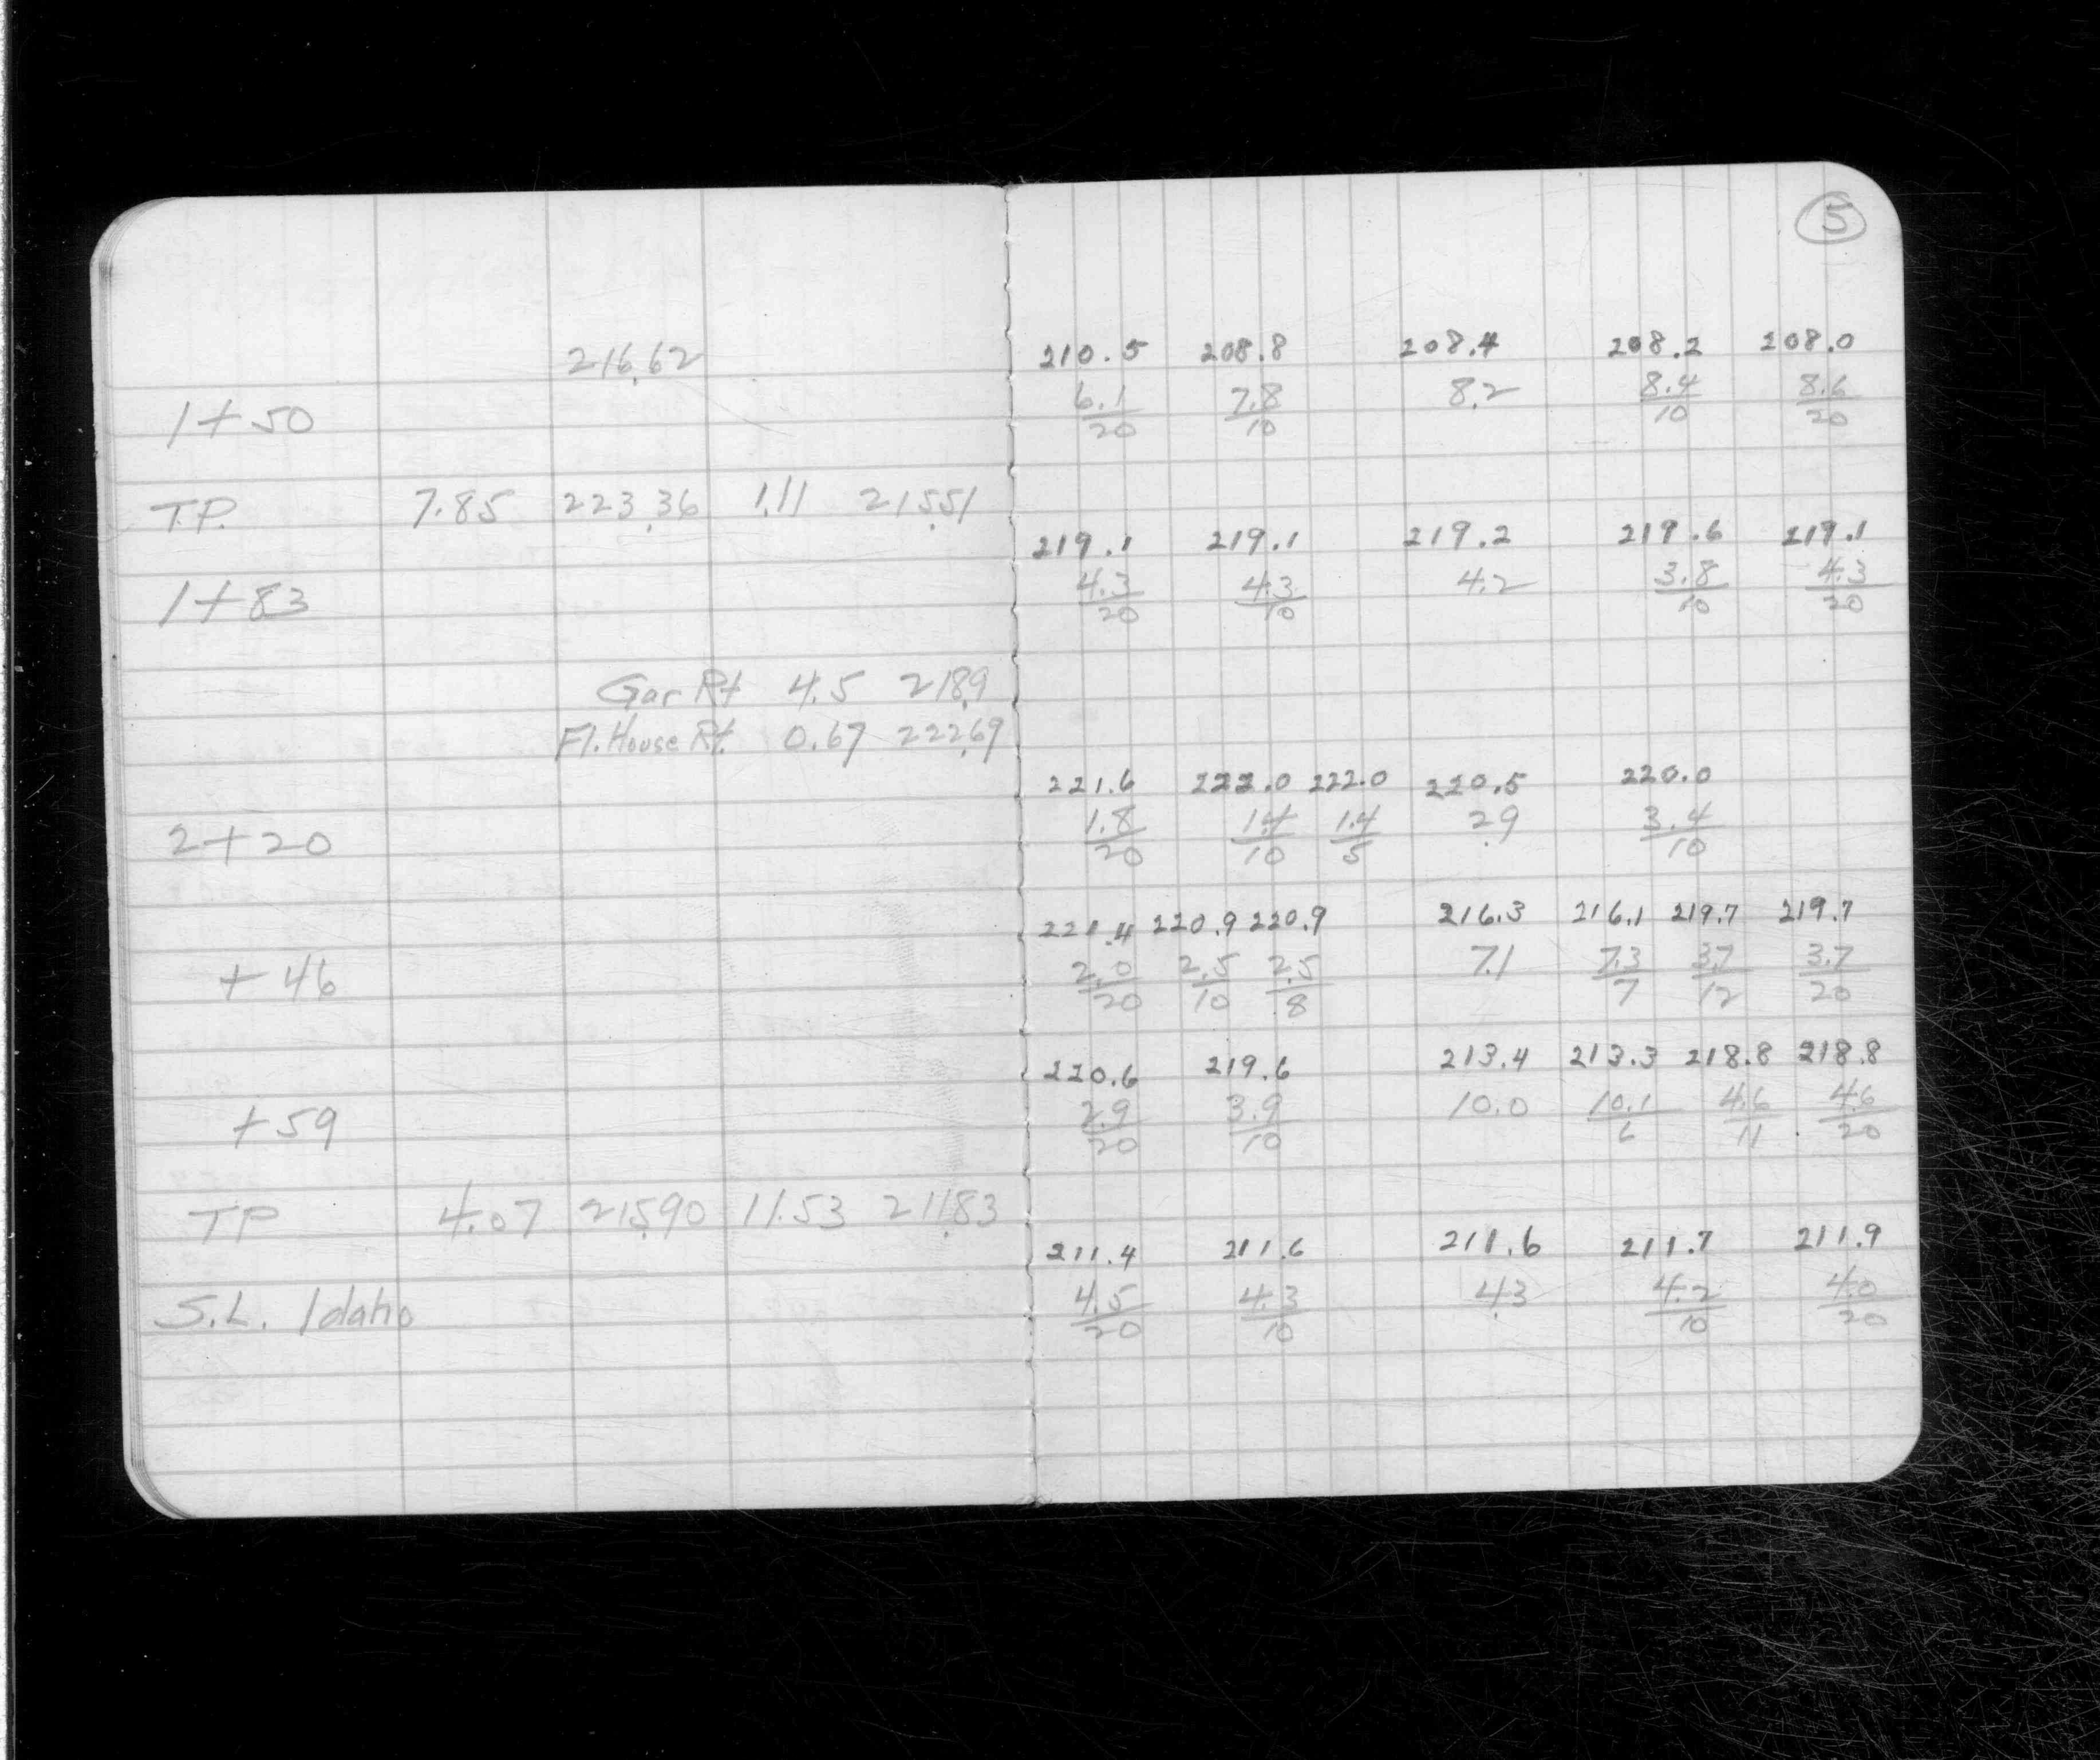 5
216.62 210.5 208.8 208.4 208.2 208.0
1+50 6.1/20 7.8/10 8.2 8.4/10 8.6/20
T.P. 7.85 223.36 1.11 215.51
219.1 219.1 219.2 219.6 219.1
1+83 4.3/20 4.3/10 4.2 3.8/10 4.3/20
Gar Rt 4.5 218.9
Fl. House Rt. 0.67 222.69
221.6 222.0 222.0 220.5 220.0
2+20 1.8/20 1.4/10 1.4/5 2.9 3.4/10
221.4 220.9 220.9 216.3 216.1 219.7 219.7
+46 2.0/20 2.5/10 2.5/8 7.1 7.3/7 3.7/12 3.7/20
220.6 219.6 213.4 213.3 218.8 218.8
+59 2.9/20 3.9/10 10.0 10.1/6 4.6/11 4.6/20
TP 4.07 215.90 11.53 211.83
211.4 211.6 211.6 211.7 211.9
S.L. Idaho 4.5/20 4.3/10 4.3 4.2/10 4.0/20